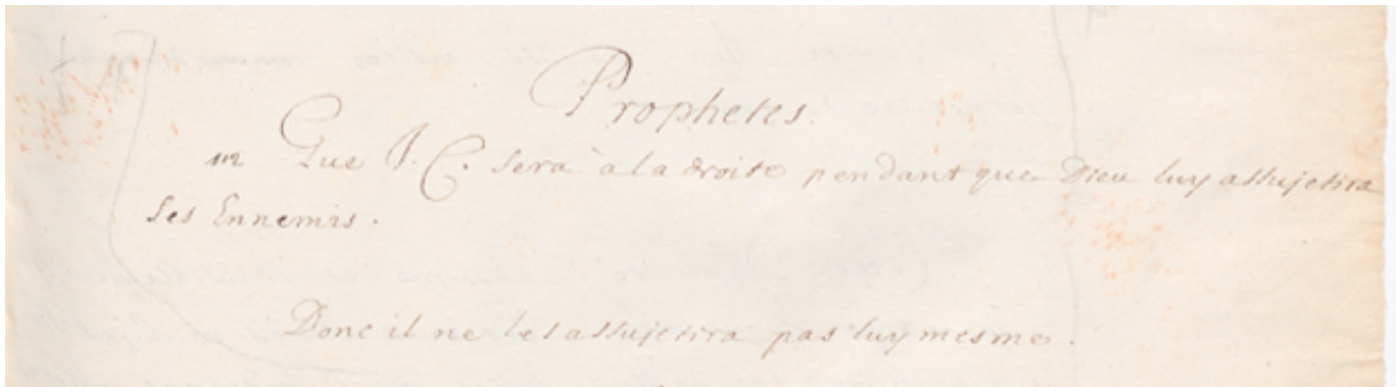 Prophetes.
Que J. C. sera à la droite pendant que Dieu luy assujetira
ses Ennemis.
Donc il ne les assujetira pas luy mesme.